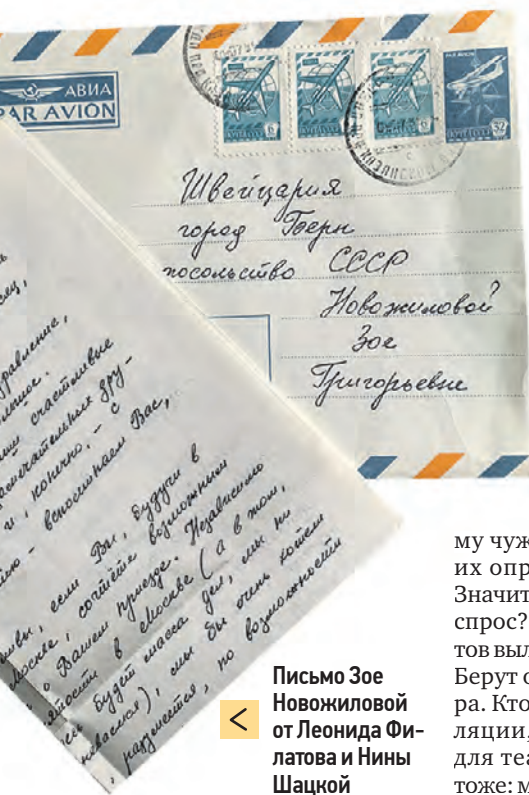 АВИА
PAR AVION
Швейцария
город Берн
посольство СССР
Новожиловой
Зое
Григорьевне
счастливые
дру-
и, конечно, - с
- вспоминаем Вас,
если Вы, будучи в
Москве, сочтёте возможным
о Вашем приезде. Независимо
в Москве (а в том,
будет масса дел, мы не
), мы бы очень хотели
разумеется, по возможности
Письмо Зое
Новожиловой
от Леонида Фи-
латова и Нины
Шацкой
му чуж
их опр
Значит
спрос?
тов выл
Берут о
ра. Кто
ляции,
для теа
тоже: м